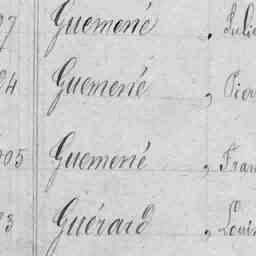 7 Guemené , Julie
4 Guemené , Pier
05 Guemené , Fran
3 Guérard , Louis